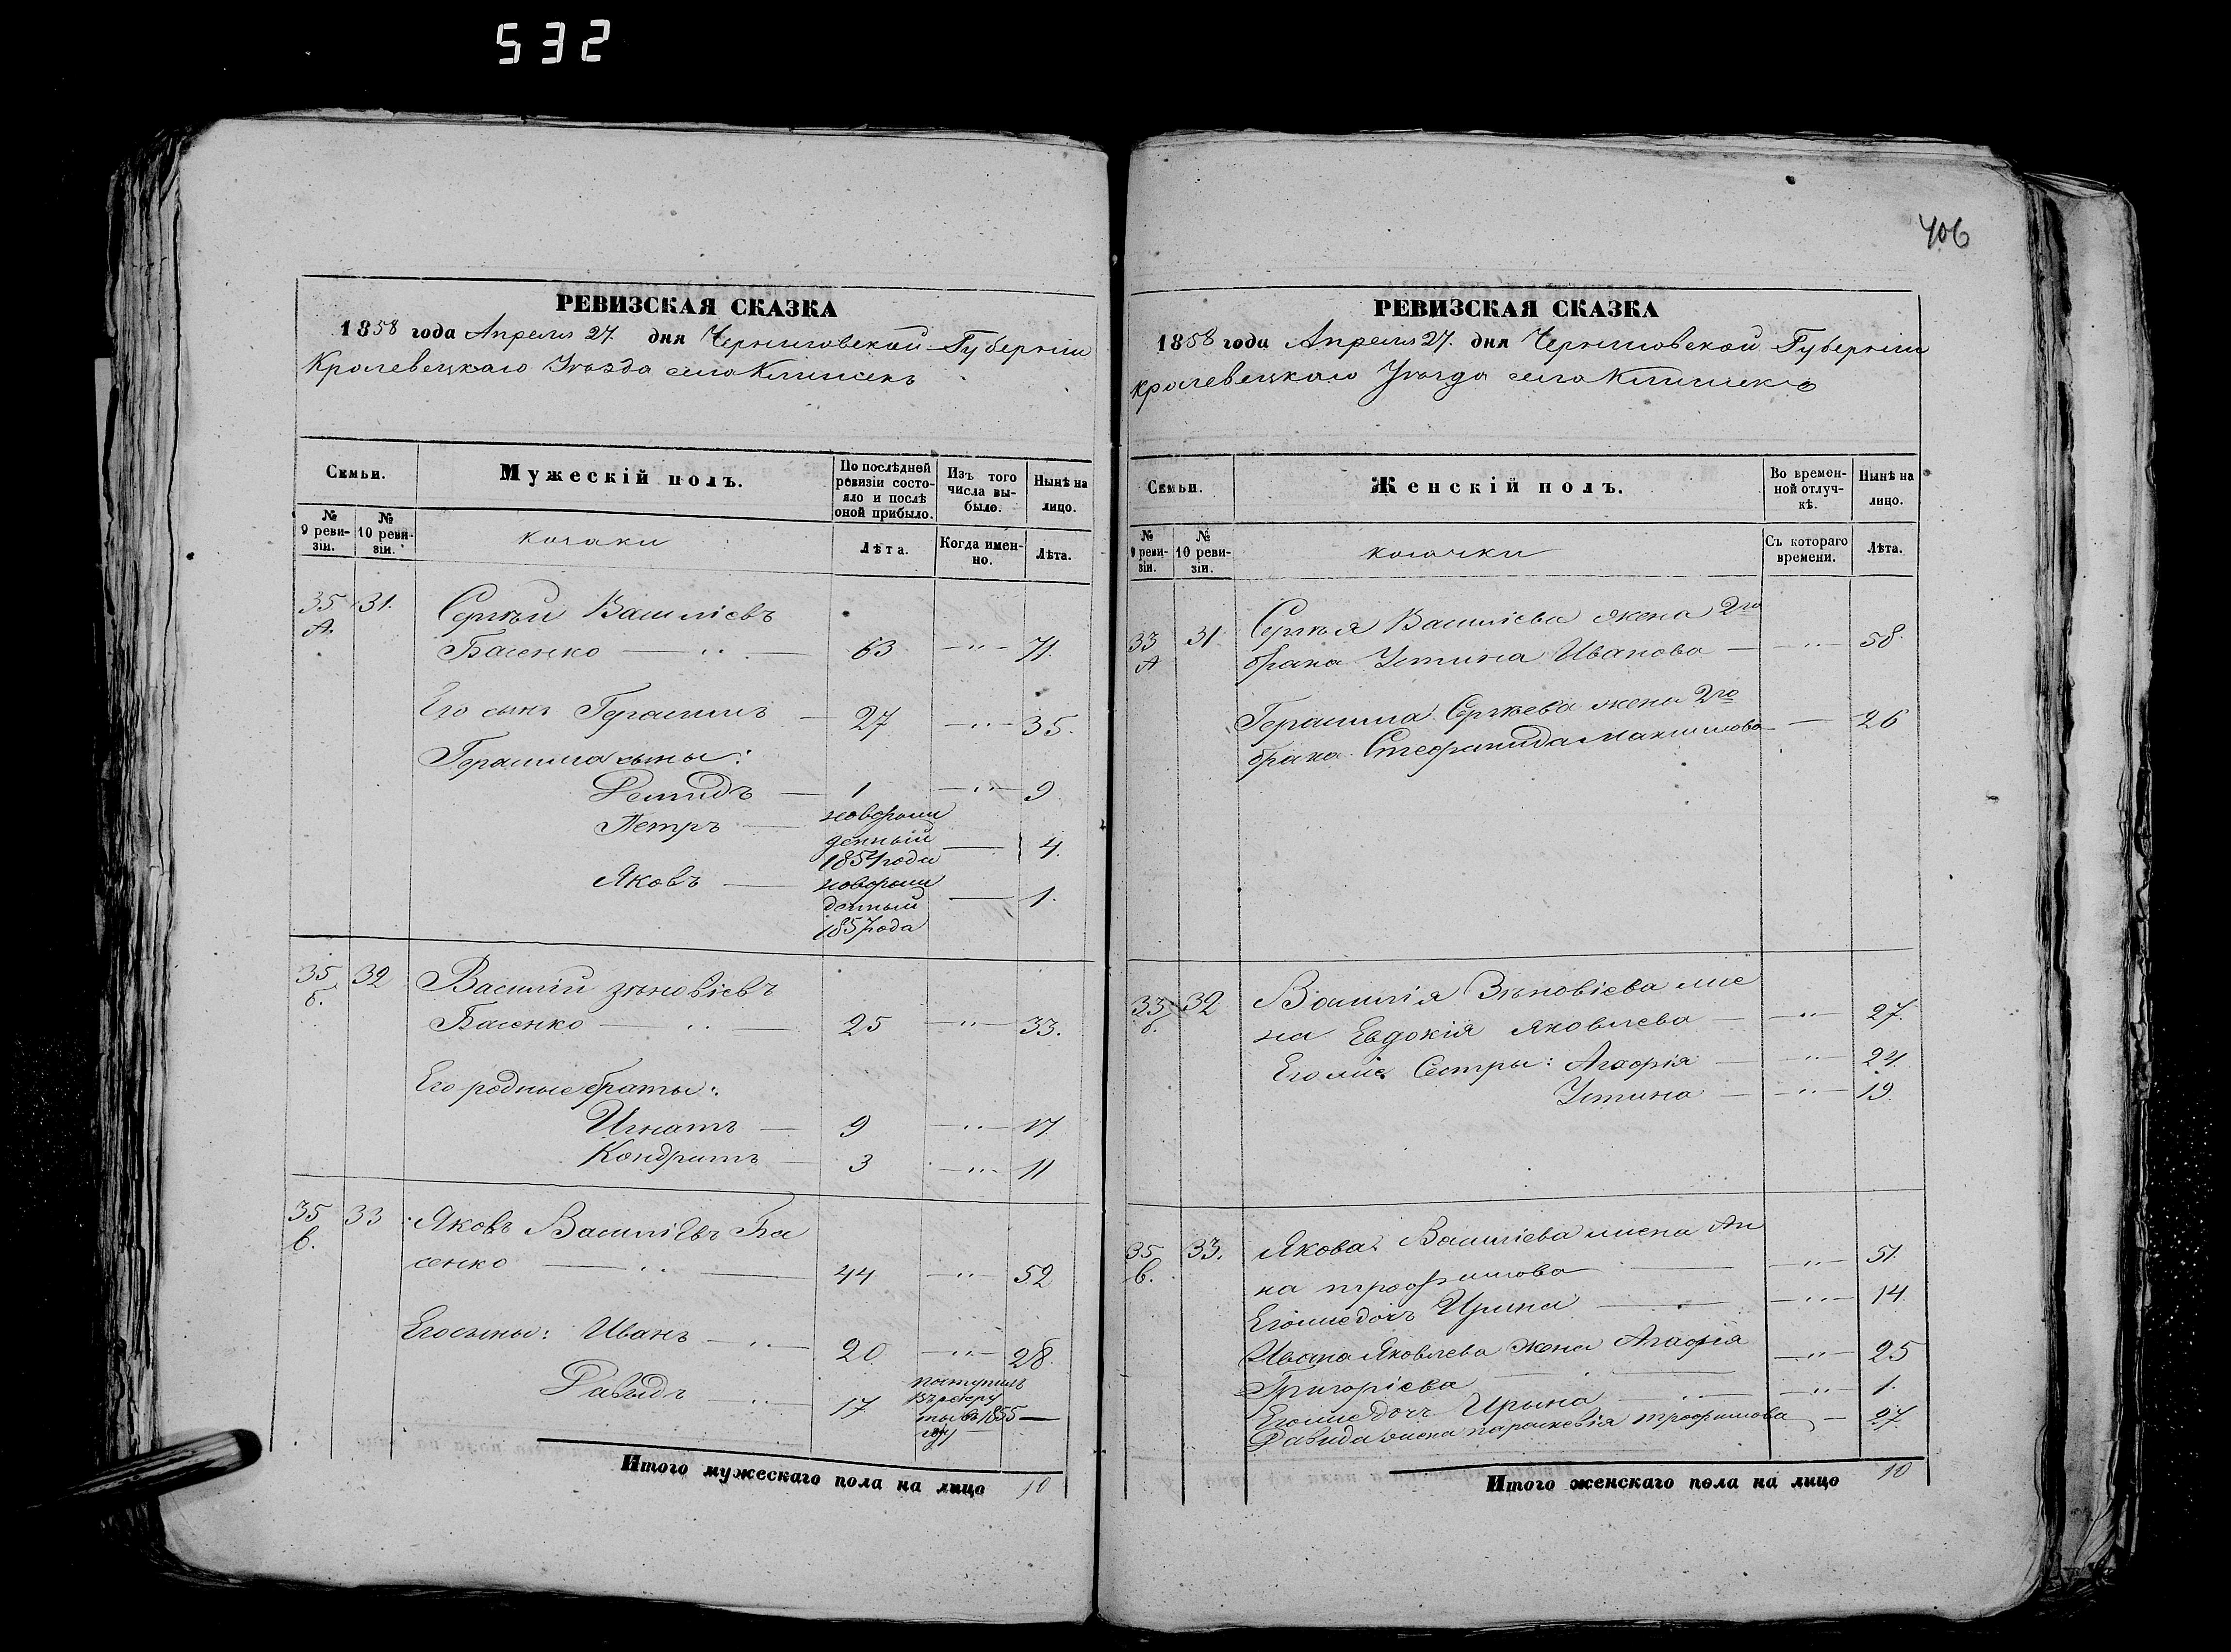 532
406
РЕВИЗСКАЯ СКАЗКА
1858 года Апреля 27. дня Черниговской Губерніи
Кролевецкаго Уѣзда села Клишекъ
Семьи.
Мужескій полъ.
По послѣдней ревизіи состояло и послѣ оной прибыло.
Изъ того числа выбыло.
Нынѣ на лицо.
№ 9 ревизіи.
№ 10 ревизіи.
козаки
Лѣта.
Когда именно.
Лѣта.
35 А. 31. Сергѣй Василіевъ
Басенко 63 71.
Его сынъ Герасимъ 27 35.
Герасима сыны:
Демидъ 1 9
Петръ новорож
денный
1854 года 4.
Яковъ новорож
денный
1857 года 1.
35 б. 32 Василій Зѣновіевъ
Басенко 25 33.
Его родные браты:
Игнатъ 9 17
Кондратъ 3 11
35 в. 33 Яковъ Василіевъ Ба
сенко 44 52
Его сыны: Иванъ 20 28.
Давидъ 17 поступилъ
въ рекру
ты въ 1855
году
Итого мужескаго пола на лицо 10
РЕВИЗСКАЯ СКАЗКА
1858 года Апреля 27. дня Черниговской Губерніи
Кролевецкаго Уѣзда села Клишекъ
Семьи.
Женскій полъ.
Во временной отлучкѣ.
Нынѣ на лицо.
№ 9 ревизіи.
№ 10 ревизіи.
козачки
Съ котораго времени.
Лѣта.
33 А 31 Сергѣя Василіева жена 2го
брака Устина Иванова 58.
Герасима Сергѣева жена 2го
брака Стефанида Максимова 26
33 б. 32 Василія Зѣновіева же
на Евдокія Яковлева 27.
Его же Сестры: Агафія 24.
Устина 19.
35 в. 33. Якова Василіева жена Ан
на Трофимова 51.
Егоже дочь Ирина 14.
Ивана Яковлева жена Агафія
Григоріева 25
Егоже дочь Ирина 1.
Давида жена Параскевія Трофимова 27.
Итого женскаго пола на лицо 10